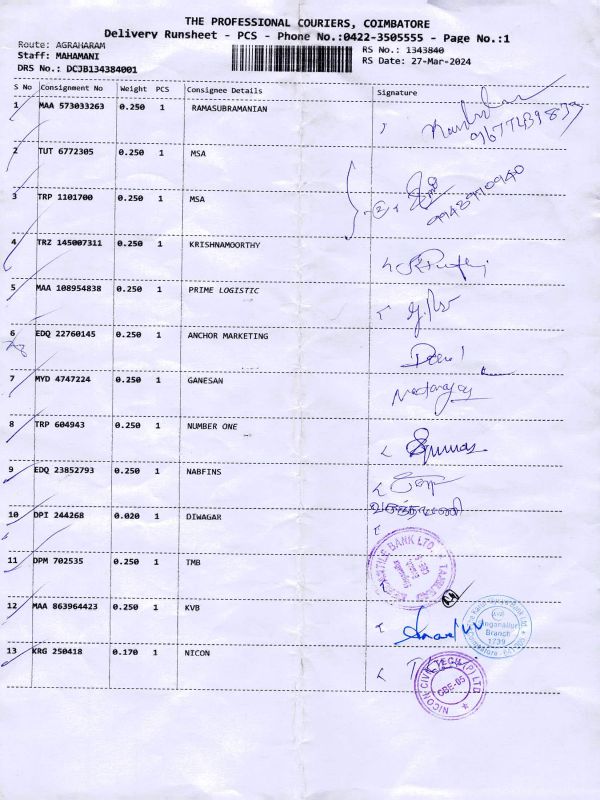 THE PROFESSIONAL COURIERS, COIMBATORE
Delivery Runsheet - PCS - Phone No.:0422-3505555 - Page No.:1
Route: AGRAHARAM
RS No.: 1343840
Staff: MAHAMANI
RS Date: 27-Mar-2024
DRS No.: DCJB134384001
S No Consignment No Weight PCS Consignee Details Signature
1 MAA 573033263 0.250 1 RAMASUBRAMANIAN
2 TUT 6772305 0.250 1 MSA
3 TRP 1101700 0.250 1 MSA
4 TRZ 145007311 0.250 1 KRISHNAMOORTHY
5 MAA 108954838 0.250 1 PRIME LOGISTIC
6 EDQ 22760145 0.250 1 ANCHOR MARKETING
7 MYD 4747224 0.250 1 GANESAN
8 TRP 604943 0.250 1 NUMBER ONE
9 EDQ 23852793 0.250 1 NABFINS
10 DPI 244268 0.020 1 DIWAGAR
11 DPM 702535 0.250 1 TMB
BANK LTD.
12 MAA 863964423 0.250 1 KVB
Branch
1739
13 KRG 250418 0.170 1 NICON
NICON CIVIL TECH (P) LTD
CBE-05